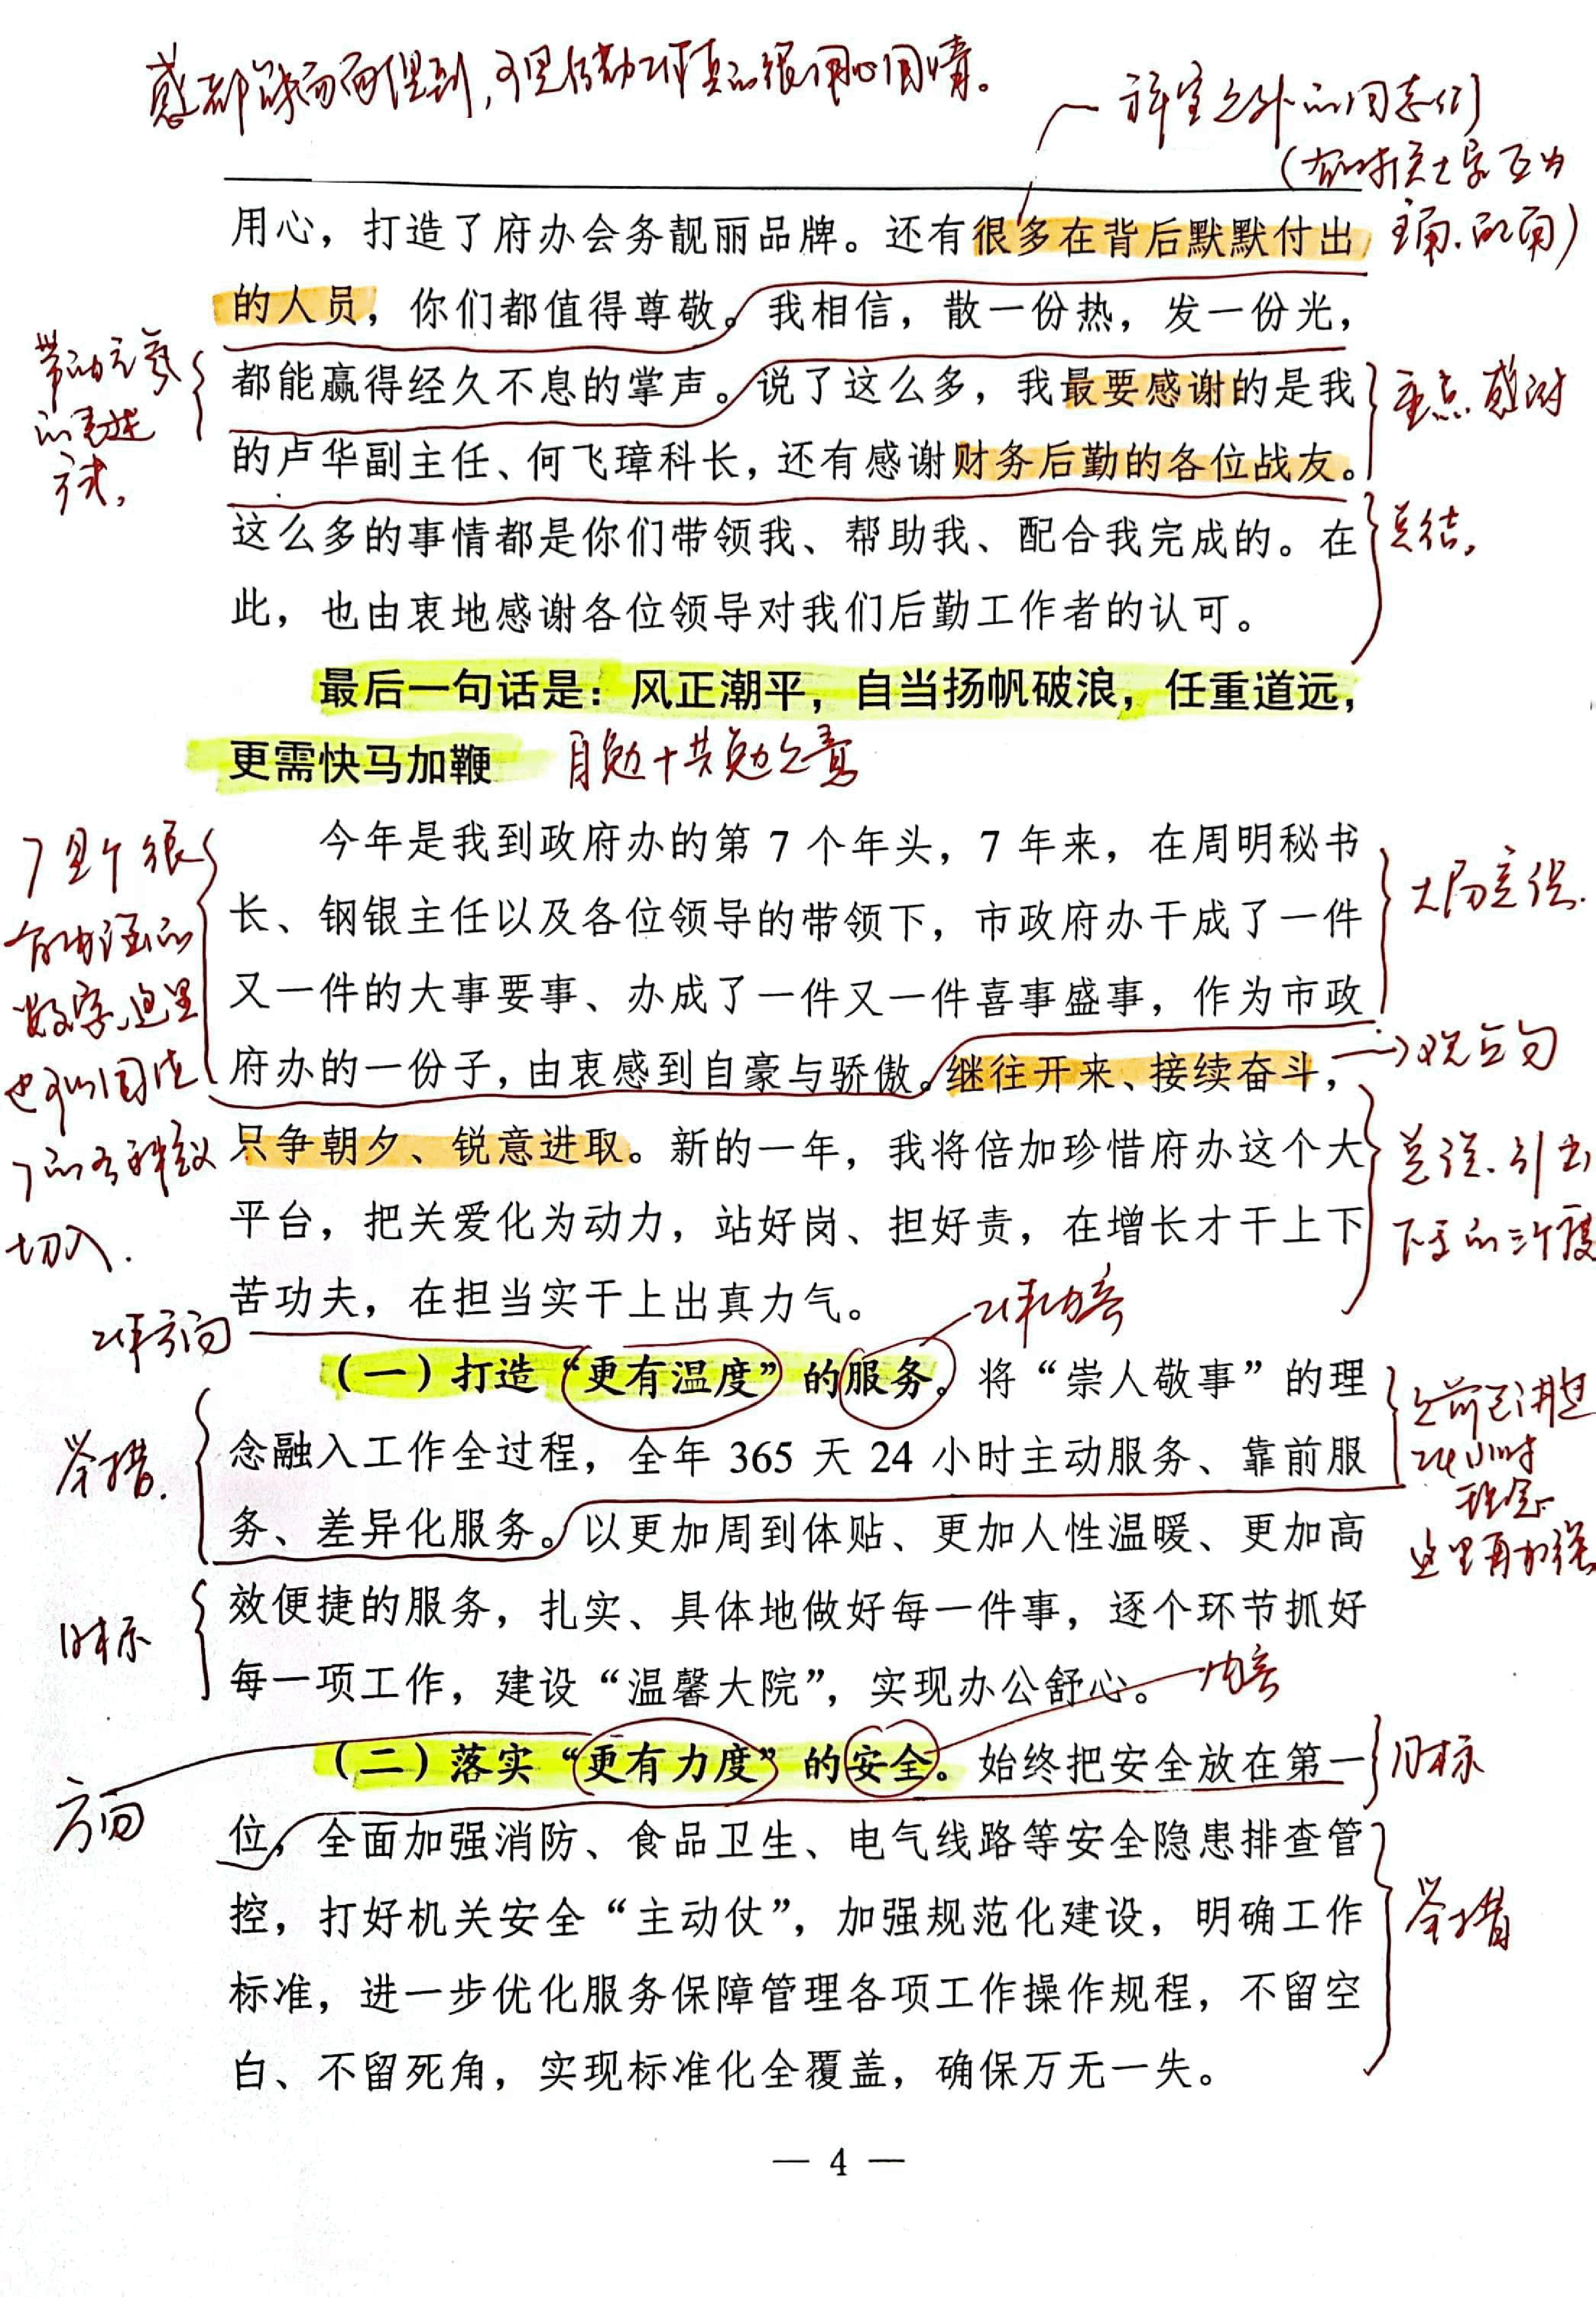 感都能面面俱到，可见后勤工作真的很用心用情。
科室之外的同志们
用心，打造了府办会务靓丽品牌。还有很多在背后默默付出
的人员，你们都值得尊敬。我相信，散一份热，发一份光，
都能赢得经久不息的掌声。说了这么多，我最要感谢的是我
的表述
方式，
重点感谢
的卢华副主任、何飞璋科长，还有感谢财务后勤的各位战友。
这么多的事情都是你们带领我、帮助我、配合我完成的。在
总结，
此，也由衷地感谢各位领导对我们后勤工作者的认可。
最后一句话是：风正潮平，自当扬帆破浪，任重道远，
更需快马加鞭
自勉+共勉之意
今年是我到政府办的第 7 个年头，7 年来，在周明秘书
长、钢银主任以及各位领导的带领下，市政府办干成了一件
又一件的大事要事、办成了一件又一件喜事盛事，作为市政
府办的一份子，由衷感到自豪与骄傲。继往开来、接续奋斗，
7是个很
有内涵的
数字，这里
也可以围绕
7的各种意义
切入.
→观点句
只争朝夕、锐意进取。新的一年，我将倍加珍惜府办这个大
平台，把关爱化为动力，站好岗、担好责，在增长才干上下
苦功夫，在担当实干上出真力气。
总说、引出
下文的三个度
工作方向
工作内容
（一）打造“更有温度”的服务。将“崇人敬事”的理
念融入工作全过程，全年 365 天 24 小时主动服务、靠前服
务、差异化服务。以更加周到体贴、更加人性温暖、更加高
举措.
之前已讲过
24小时
理念
这里再加强
效便捷的服务，扎实、具体地做好每一件事，逐个环节抓好
每一项工作，建设“温馨大院”，实现办公舒心。
目标
内容
（二）落实“更有力度”的安全。始终把安全放在第一
目标
方向
位，全面加强消防、食品卫生、电气线路等安全隐患排查管
控，打好机关安全“主动仗”，加强规范化建设，明确工作
举措
标准，进一步优化服务保障管理各项工作操作规程，不留空
白、不留死角，实现标准化全覆盖，确保万无一失。
— 4 —